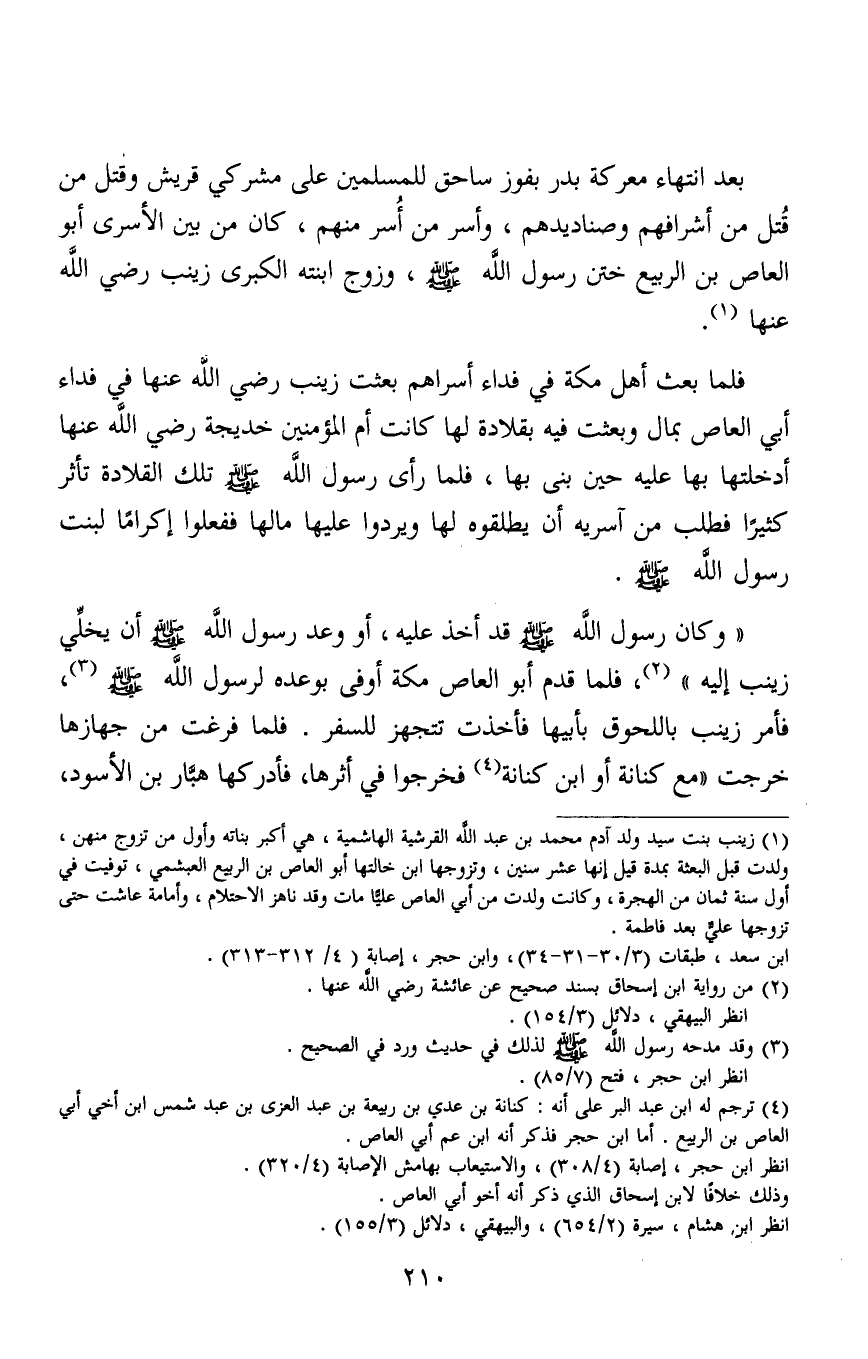 بعد انتهاء معركة بدر بفوز ساحق للمسلمين على مشركي قريش وقتل من
قُتل من أشرافهم وصناديدهم ، وأسر من أُسر منهم ، كان من بين الأسرى أبو
العاص بن الربيع ختن رسول اللَّه ﷺ ، وزوج ابنته الكبرى زينب رضي اللَّه
عنها (١).
فلما بعث أهل مكة في فداء أسراهم بعثت زينب رضي اللَّه عنها في فداء
أبي العاص بمال وبعثت فيه بقلادة لها كانت أم المؤمنين خديجة رضي اللَّه عنها
أدخلتها بها عليه حين بنى بها ، فلما رأى رسول اللَّه ﷺ تلك القلادة تأثر
كثيرًا فطلب من آسريه أن يطلقوه لها ويردوا عليها مالها ففعلوا إكرامًا لبنت
رسول اللَّه ﷺ .
« وكان رسول اللَّه ﷺ قد أخذ عليه ، أو وعد رسول اللَّه ﷺ أن يخلِّي
زينب إليه » (٢)، فلما قدم أبو العاص مكة أوفى بوعده لرسول اللَّه ﷺ (٣)،
فأمر زينب باللحوق بأبيها فأخذت تتجهز للسفر . فلما فرغت من جهازها
خرجت «مع كنانة أو ابن كنانة(٤) فخرجوا في أثرها، فأدركها هبَّار بن الأسود،
(١) زينب بنت سيد ولد آدم محمد بن عبد اللَّه القرشية الهاشمية ، هي أكبر بناته وأول من تزوج منهن ،
ولدت قبل البعثة بمدة قيل إنها عشر سنين ، وتزوجها ابن خالتها أبو العاص بن الربيع العبشمي ، توفيت في
أول سنة ثمان من الهجرة ، وكانت ولدت من أبي العاص عليًّا مات وقد ناهز الاحتلام ، وأمامة عاشت حتى
تزوجها عليٌّ بعد فاطمة .
ابن سعد ، طبقات (٣/ ٣٠-٣١-٣٤)، وابن حجر ، إصابة ( ٤/ ٣١٢-٣١٣) .
(٢) من رواية ابن إسحاق بسند صحيح عن عائشة رضي اللَّه عنها .
انظر البيهقي ، دلائل (٣/ ١٥٤) .
(٣) وقد مدحه رسول اللَّه ﷺ لذلك في حديث ورد في الصحيح .
انظر ابن حجر ، فتح (٧/ ٨٥) .
(٤) ترجم له ابن عبد البر على أنه : كنانة بن عدي بن ربيعة بن عبد العزى بن عبد شمس ابن أخي أبي
العاص بن الربيع . أما ابن حجر فذكر أنه ابن عم أبي العاص .
انظر ابن حجر ، إصابة (٤/ ٣٠٨) ، والاستيعاب بهامش الإصابة (٤/ ٣٢٠) .
وذلك خلافًا لابن إسحاق الذي ذكر أنه أخو أبي العاص .
انظر ابن هشام ، سيرة (٢/ ٦٥٤) ، والبيهقي ، دلائل (٣/ ١٥٥) .
٢١٠